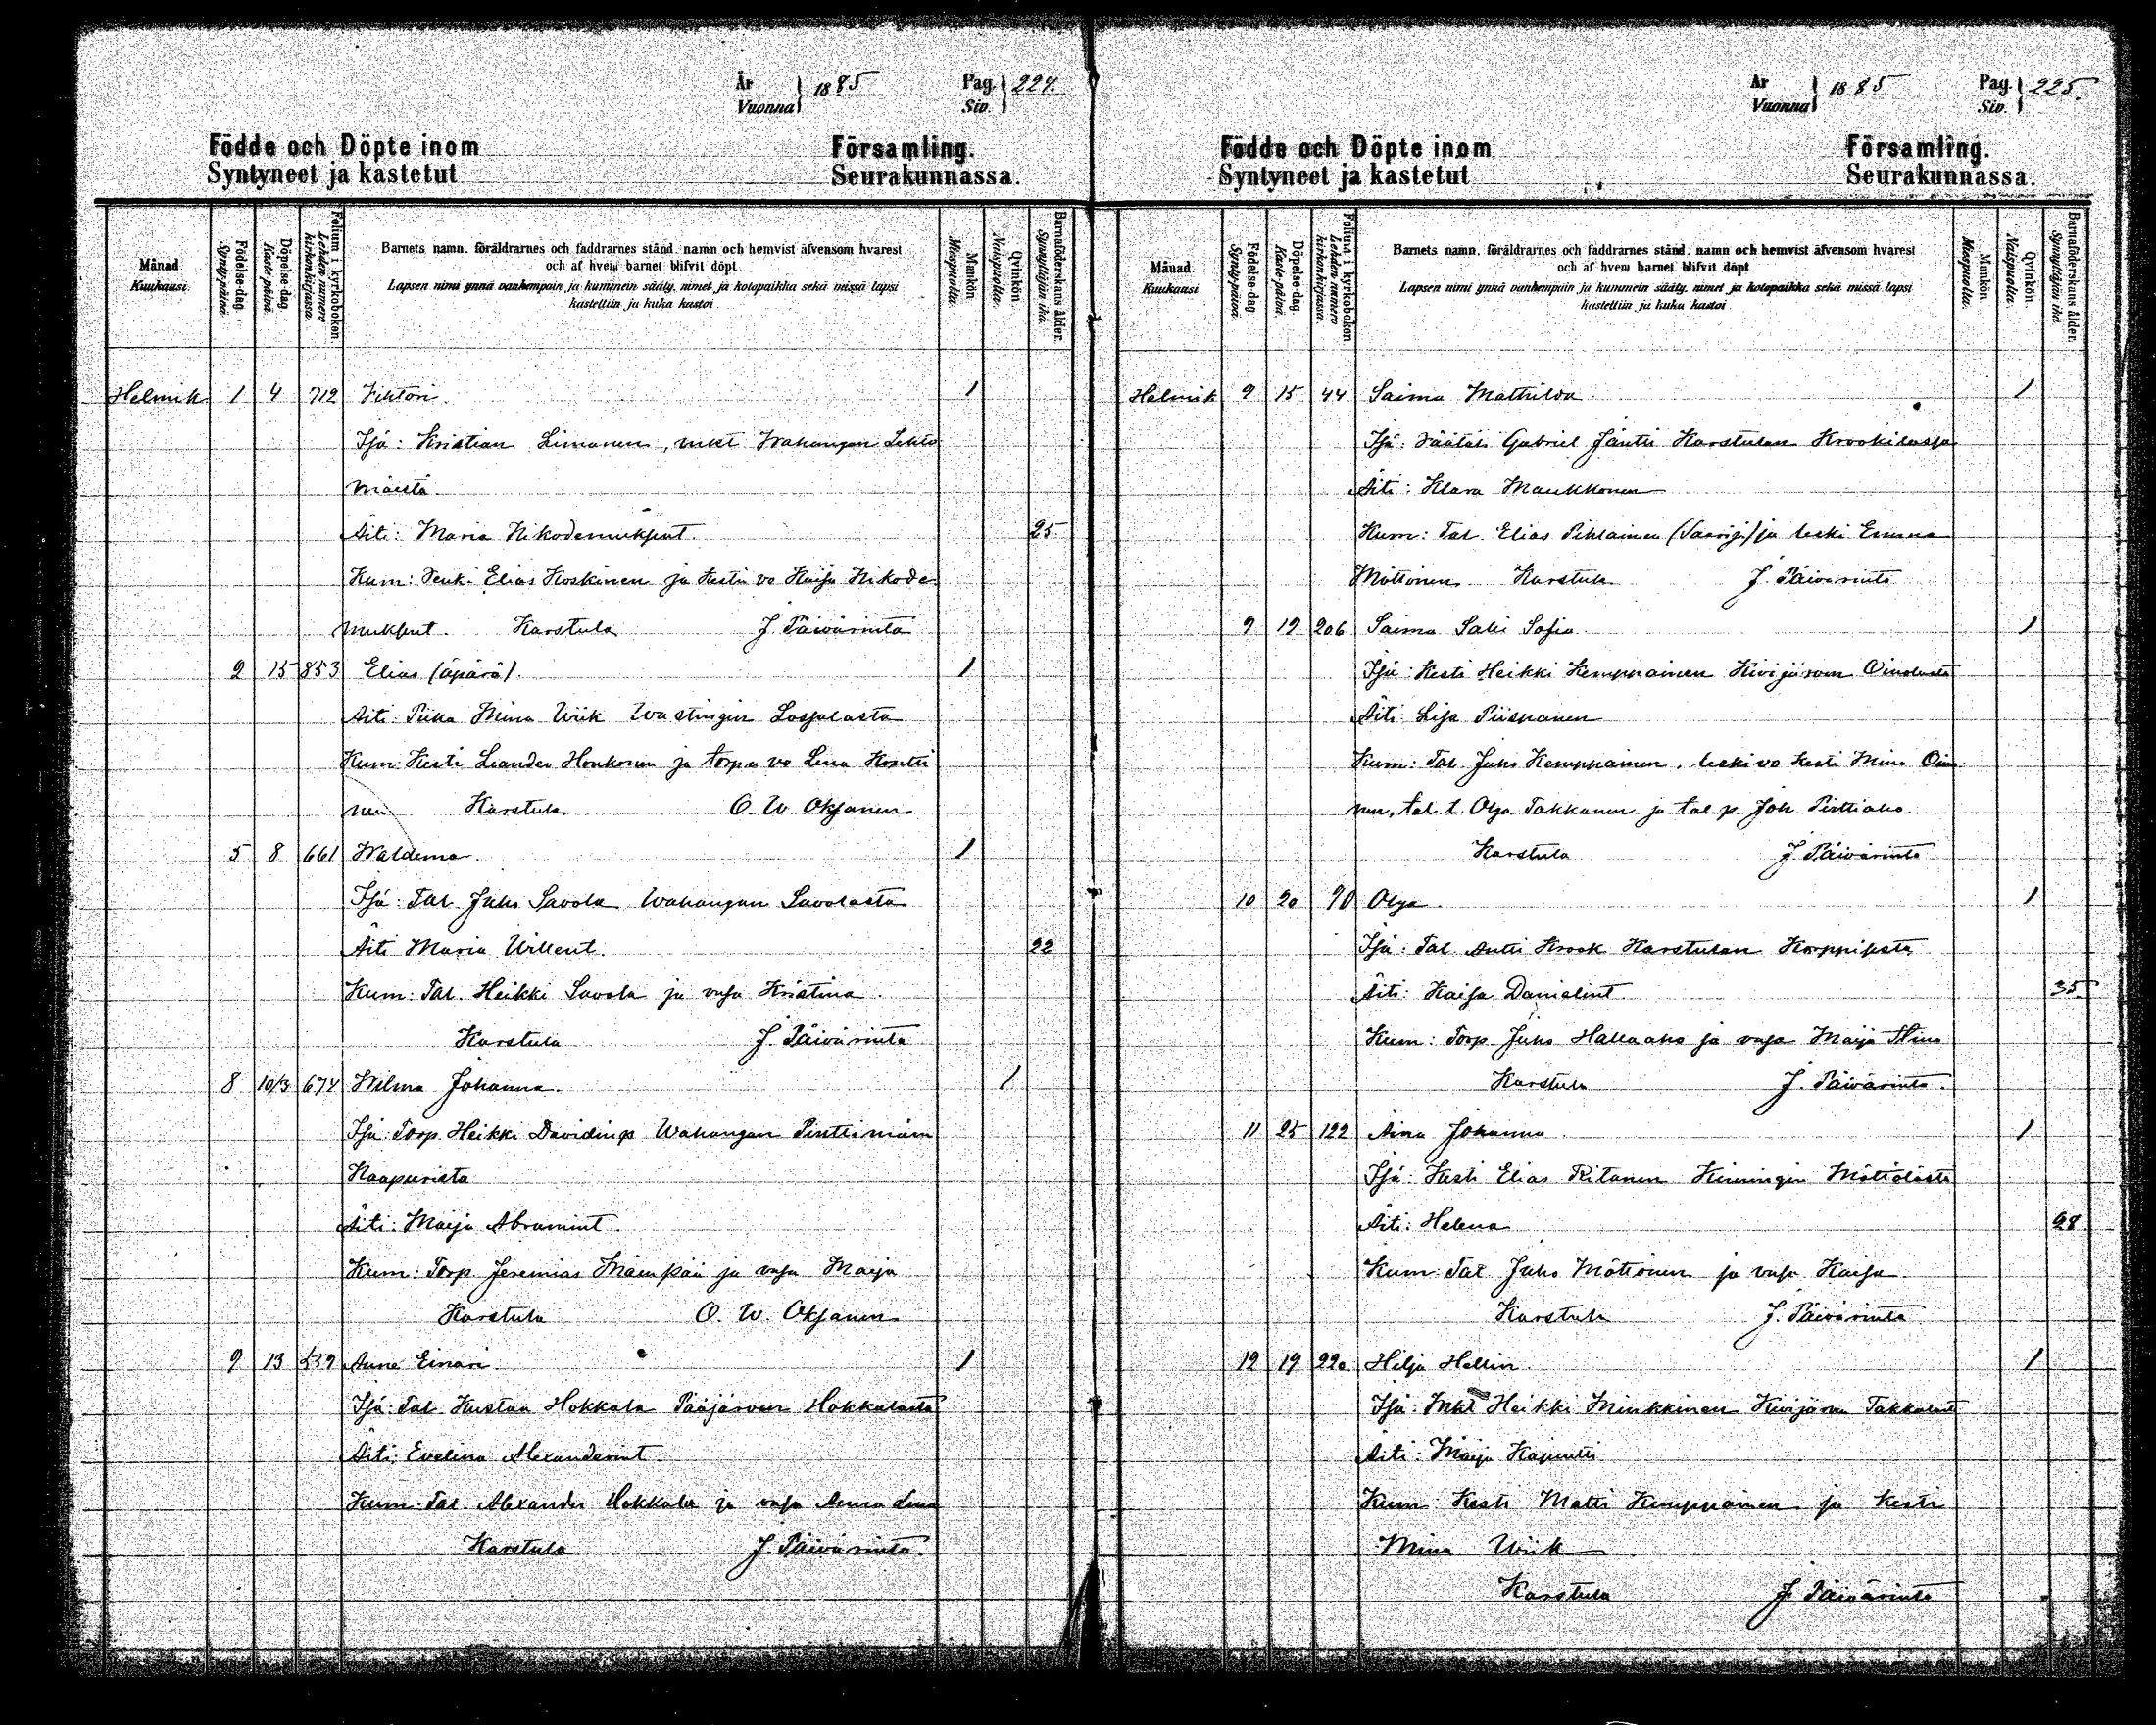 År
Vuonna } 1885 Pag. Siv. } 224.
Födde och Döpte inom Församling.
Syntyneet ja kastetut Seurakunnassa.
Månad Kuukausi.
Födelse-dag. Synty-päivä.
Döpelse-dag. Kaste-päivä.
Folium i kyrkoboken Lehden numero kirkonkirjassa.
Barnets namn, föräldrarnes och faddrarnes stånd, namn och hemvist äfvensom hvarest
och af hvem barnet blifvit döpt.
Lapsen nimi ynnä vanhempain ja kummein sääty, nimet ja kotopaikka sekä missä lapsi
kastettiin ja kuka kastoi.
Mankön Miespuolta.
Qvinkön Naispuolta.
Barnaföderskans ålder. Synnyttäjän ikä.
Helmik 1 4 712 Vihtori. 1
Isä: Kristian Limonen, mkt Wahangan Lehto
mäestä.
Äiti: Maria Nikodemukput. 25
Kum: Renki Elias Koskinen ja kestin vo Kaisa Nikode
mukput. Karstula J. Päivärinta
2 15 853 Elias (äpärä). 1
Äiti: Piika Mina Wiik Wastingin
Kum: Kesti Leander Honkonen ja torpn vo Lena Kontti
nen Karstula O. W. Oksanen
5 8 661 Waldema. 1
Isä: Tal Juho Savola Wahangan Savolasta
Äiti Maria Willent. 22
Kum: Tal. Heikki Savola ja vaja Kristina.
Karstula J. Päivärinta
8 10/3 674 Wilma Johanna. 1
Isä: Torp. Heikki Davidinp Wahangan Pirttimäen
Kaapurista
Äiti: Maija Abramint.
Kum: Torp Jeremias Mäenpää ja vaja Maija
Karstula O. W. Oksanen
9 13 539 Aune Einari. 1
Isä: Tal Kustaa Hokkala Pääjärven Hokkalasta
Äiti: Evelina Alexanderint
Kum: Tal. Alexander Hokkala ja vaja Anna Lena
Karstula J. Päivärinta.
År
Vuonna } 1885 Pag. Siv. } 225.
Födde och Döpte inom Församling.
Syntyneet ja kastetut Seurakunnassa.
Månad Kuukausi.
Födelse-dag. Synty-päivä.
Döpelse-dag. Kaste-päivä.
Folium i kyrkoboken Lehden numero kirkonkirjassa.
Barnets namn, föräldrarnes och faddrarnes stånd, namn och hemvist äfvensom hvarest
och af hvem barnet blifvit döpt.
Lapsen nimi ynnä vanhempain ja kummein sääty, nimet ja kotopaikka sekä missä lapsi
kastettiin ja kuka kastoi.
Mankön Miespuolta.
Qvinkön Naispuolta.
Barnaföderskans ålder. Synnyttäjän ikä
Helmik 9 15 44 Saima Mathilda. 1
Isä: Räätäli Gabriel Jäntti Karstulan
Äiti: Klara Maukkonen
Kum: Tal. Elias Pihlainen (Saarij) ja leski Emma
Möttönen Karstula J. Päivärinta
9 19 206 Saima Sali Sofia. 1
Isä: Kesti Heikki Kemppainen Kivijärven Oinolasta
Äiti: Lisa Piispanen
Kum: Tal. Juho Kemppainen, leski vo kesti Mina Oino
nen, tal. t. Olga Takkanen ja tal. p. Joh. Pirttiaho.
Karstula J. Päivärinta
10 20 90 Olga. 1
Isä: Tal. Antti Krook Karstulan
Äiti: Kaisa Danielint 35.
Kum: Torp Juho Hallaaho ja vaja Maija Stina
Karstula J. Päivärinta.
11 25 122 Aina Johanna. 1
Isä: Kesti Elias Ritanen Kiminigin Möttölästä
Äiti: Helena 28
Kum: Tal Juho Möttönen ja vaja Kaisa.
Karstula J. Päivärinta
12 19 220 Hilja Hellin. 1
Isä: Mkt Heikki Minkkinen Kivijärven Takkalast
Äiti: Maija
Kum: Kesti Matti Kemppainen ja kesti
Mina Wiik
Karstula J. Päivärinta